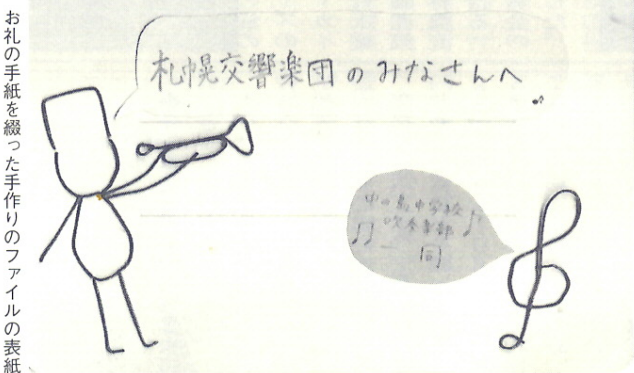 お礼の手紙を綴った手作りのファイルの表紙
札幌交響楽団のみなさんへ
中の島中学校
吹奏楽部
一同